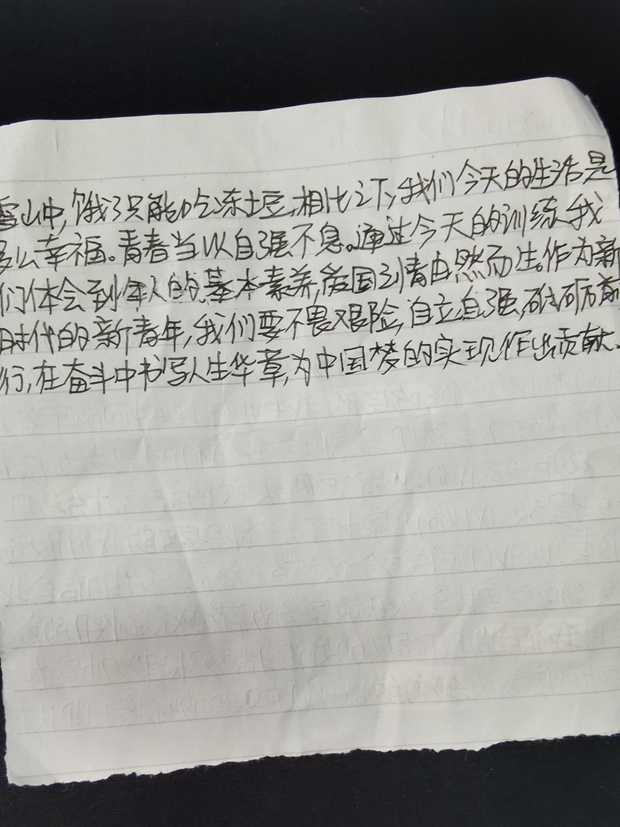 雪山中,饿了只能吃冻土豆,相比之下,我们今天的生活是
多么幸福。青春当以自强不息。通过今天的训练,我
们体会到军人的基本素养,爱国之情由然而生。作为新
时代的新青年,我们要不畏艰险,自立自强,砥砺前
行,在奋斗中书写人生华章,为中国梦的实现作出贡献。